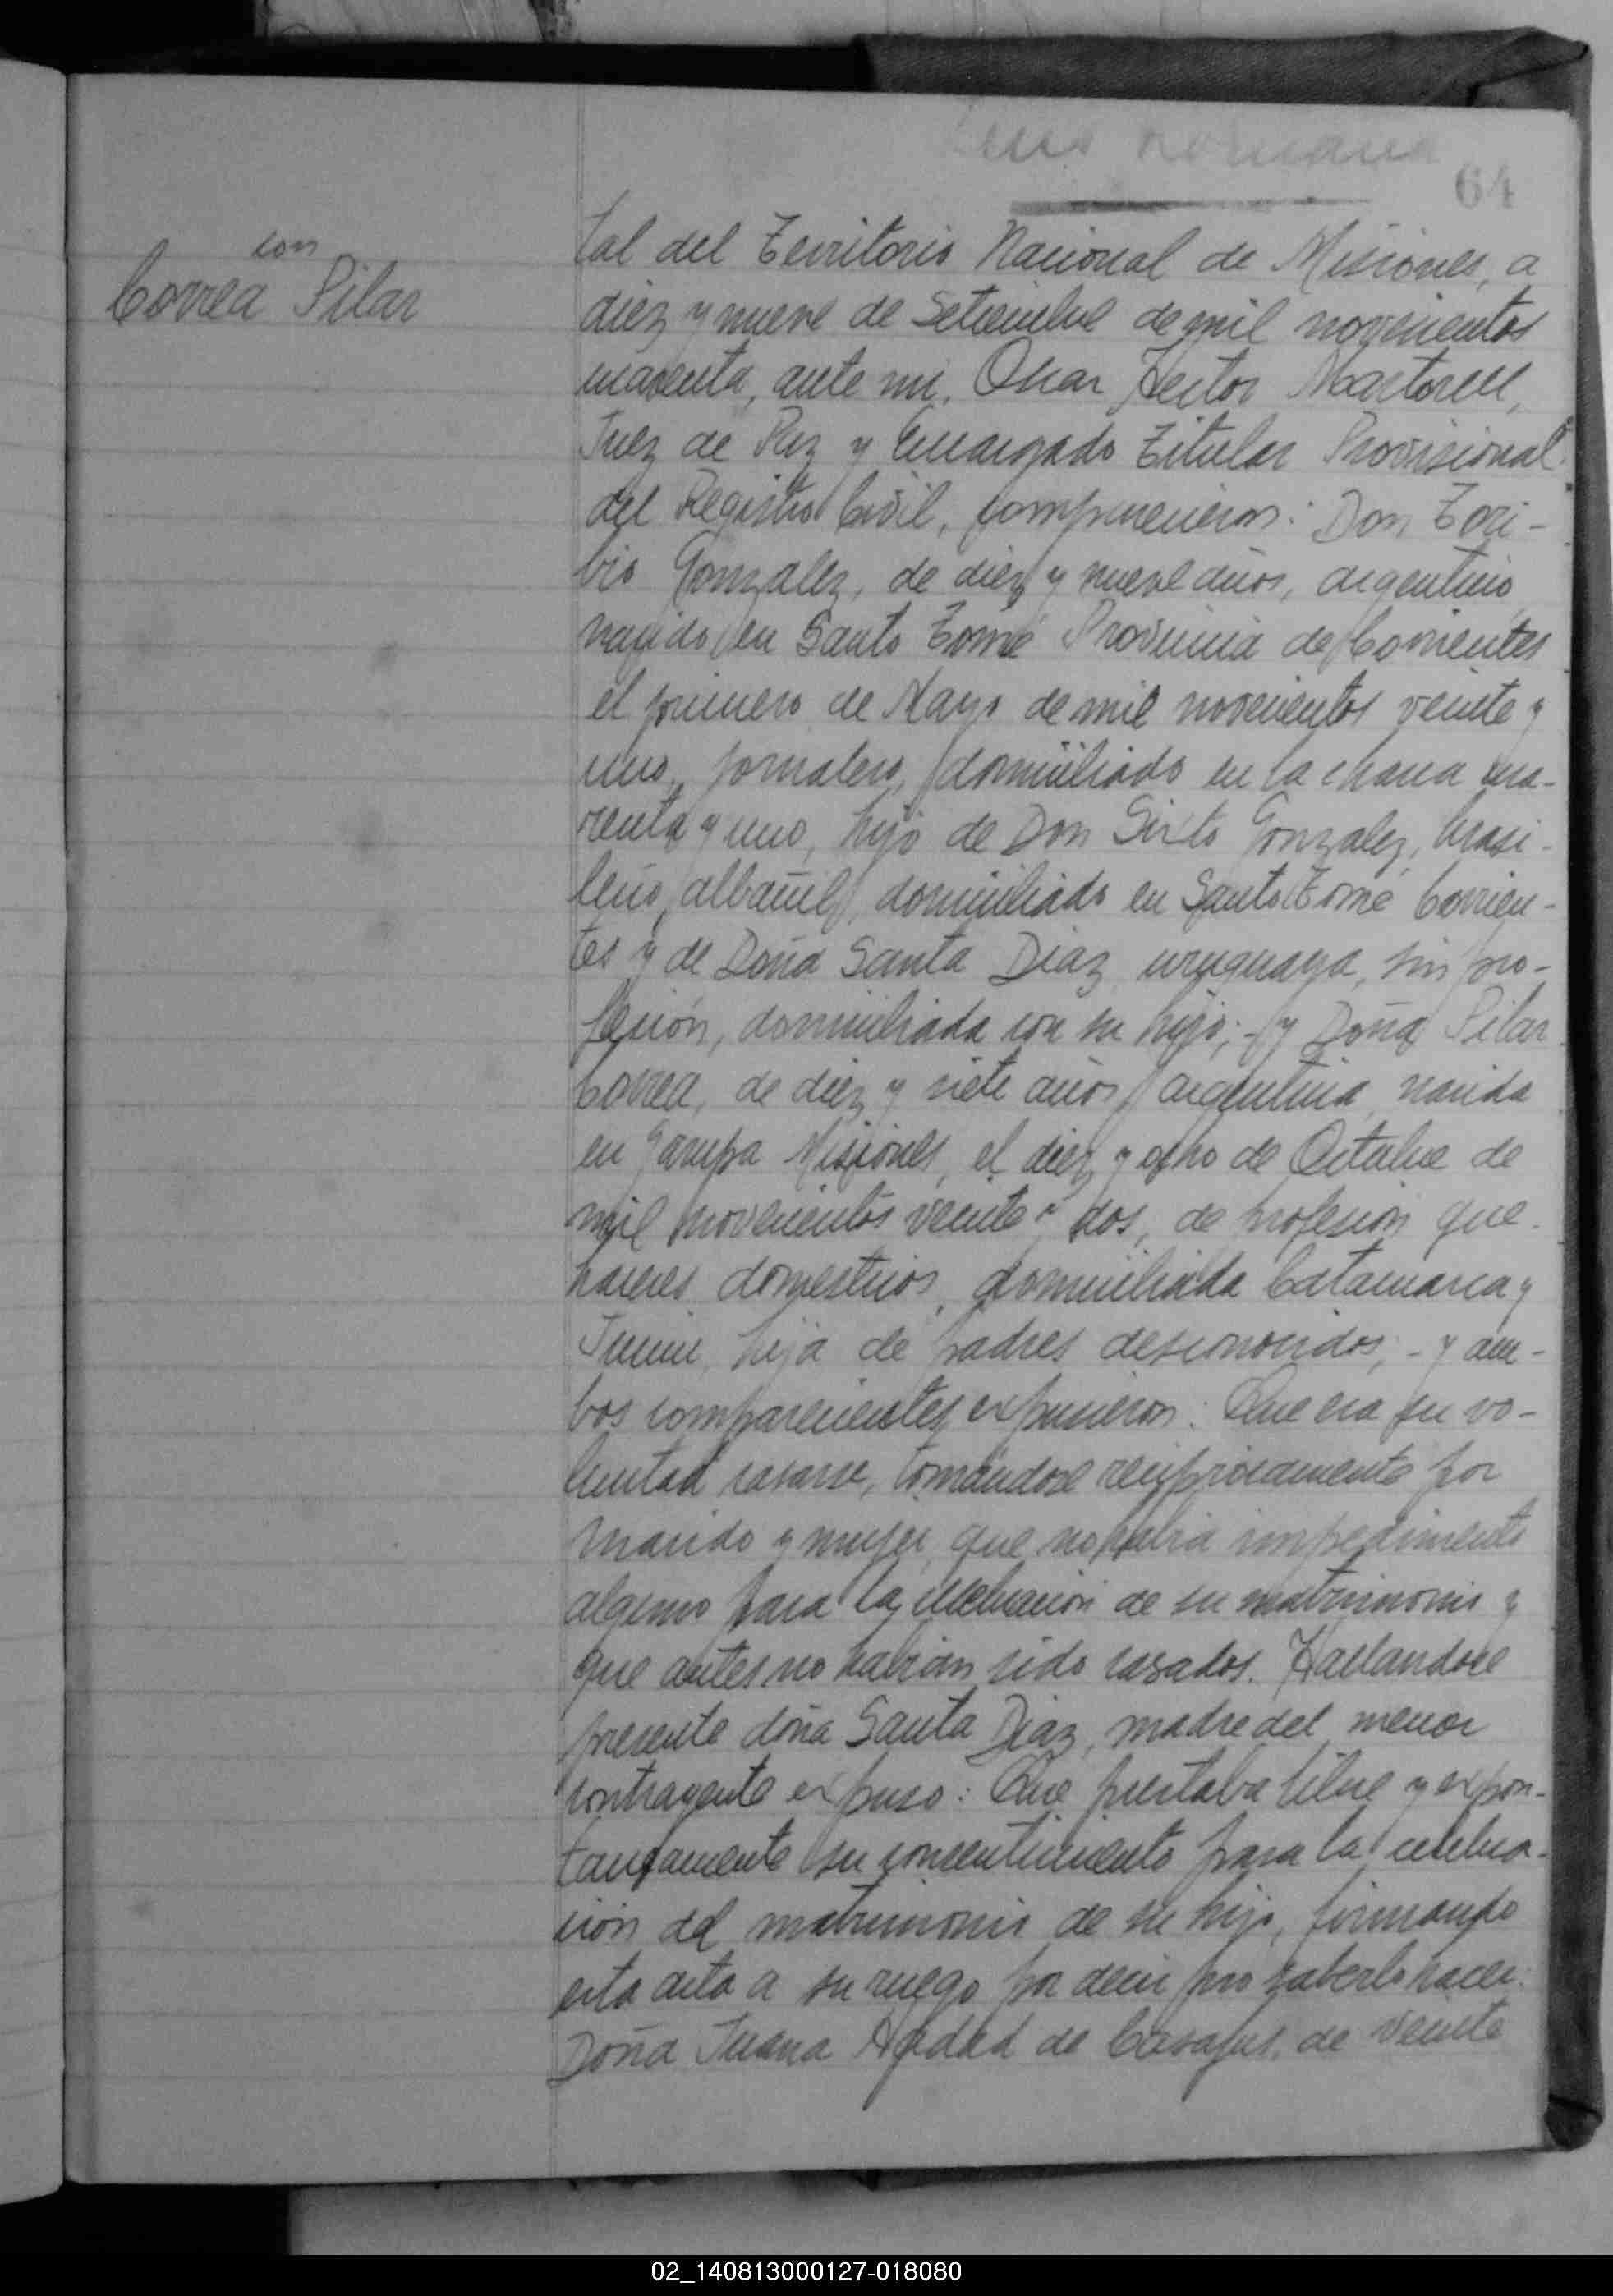 64
con
Correa Pilar
tal del Territorio Nacional de Misiones, a
diez y nueve de Setiembre de mil novecientos
cuarenta, ante mi, Oscar Hector Martorell,
Juez de Paz y Encargado Titular Provisional
del Registro Civil, comparecieron: Don Tori-
bio Gonzalez, de diez y nueve años, argentino,
nacido en Santo Tomé Provincia de Corrientes
el primero de Mayo de mil novecientos veinte y
uno, jornalero, domiciliado en la chacra cua-
renta y uno, hijo de Don Sixto Gonzalez, brasi-
leño, albañil, domiciliado en Santo Tomé Corrien-
tes y de Doña Santa Diaz, uruguaya, sin pro-
fesión, domiciliada con su hijo; - y Doña Pilar
Correa, de diez y siete años, argentina, nacida
en Garupa Misiones, el diez y ocho de Octubre de
mil novecientos veinte y dos, de profesion que-
haceres domesticos, domiciliada Catamarca y
Junin, hija de padres desconocidos; - y am-
bos comparecientes expusieron: Que era su vo-
luntad casarse, tomandose reciprocamente por
marido y mujer, que no habia impedimento
alguno para la celebracion de su matrimonio y
que antes no habian sido casados. Hallandose
presente doña Santa Diaz, madre del menor
contrayente expuso: Que prestaba libre y expon-
taneamente su concentimiento para la celebra-
cion del matrimonio de su hijo, firmando
esta acta a su ruego por decir no saberlo hacer:
Doña Juana de de veinte
02_140813000127-018080